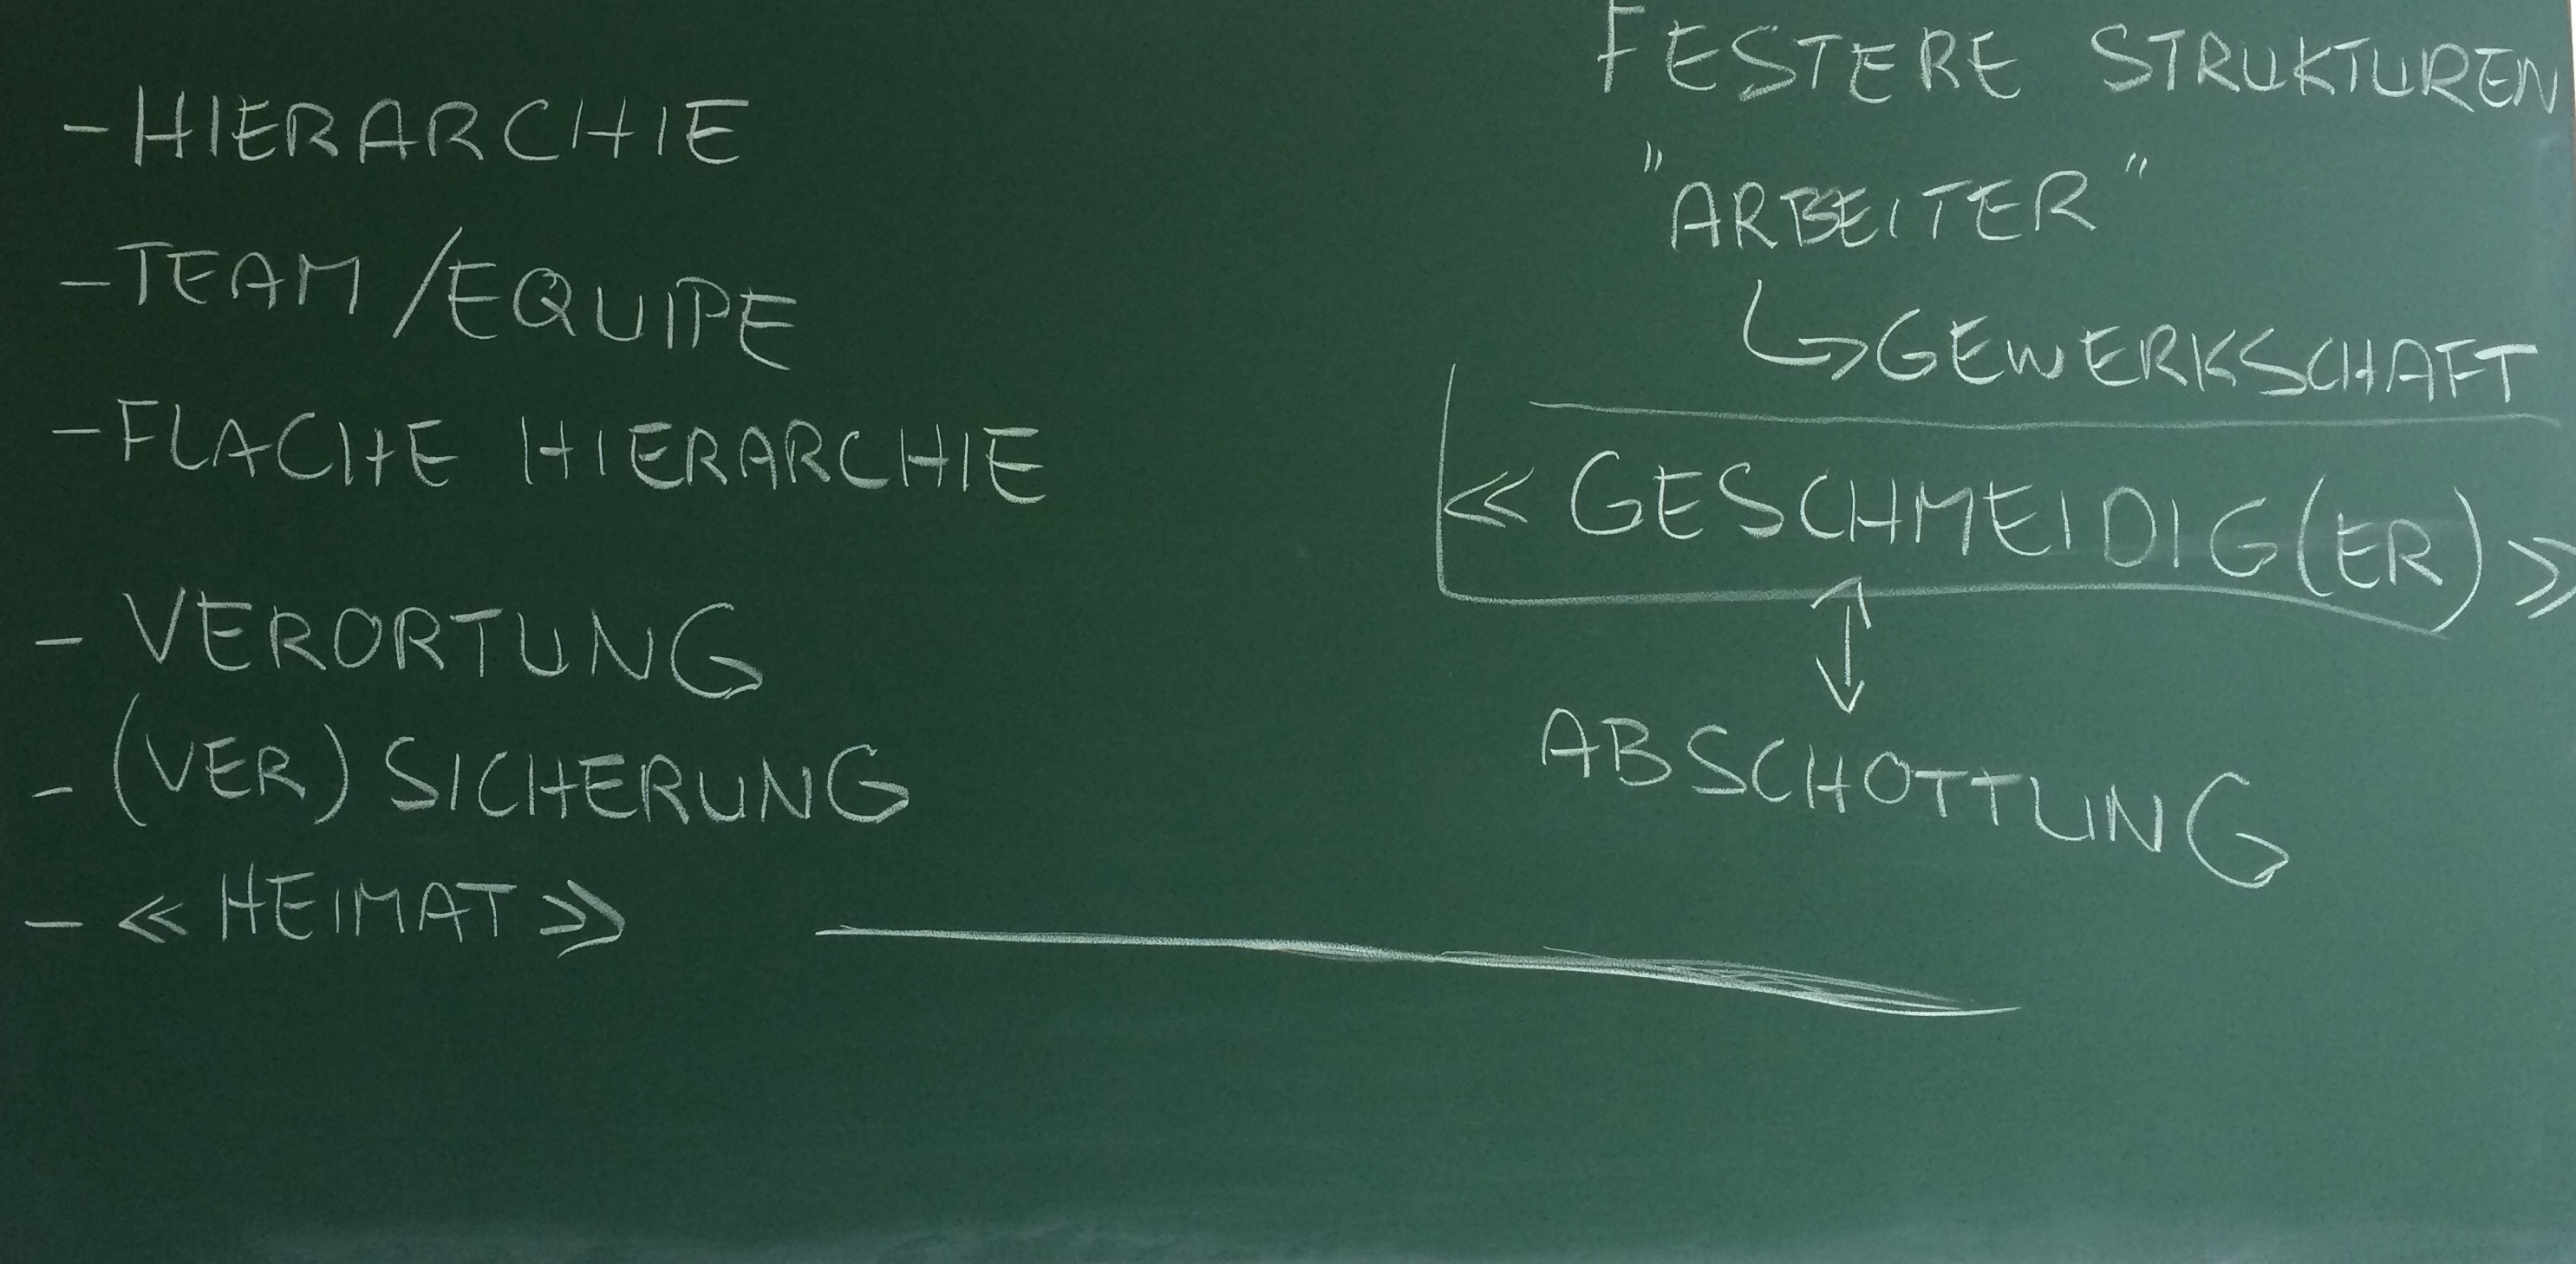 - HIERARCHIE
- TEAM / EQUIPE
- FLACHE HIERARCHIE
- VERORTUNG
- (VER) SICHERUNG
- « HEIMAT »
FESTERE STRUKTUREN
"ARBEITER"
↳ GEWERKSCHAFT
« GESCHMEIDIG(ER) »
↕
ABSCHOTTUNG